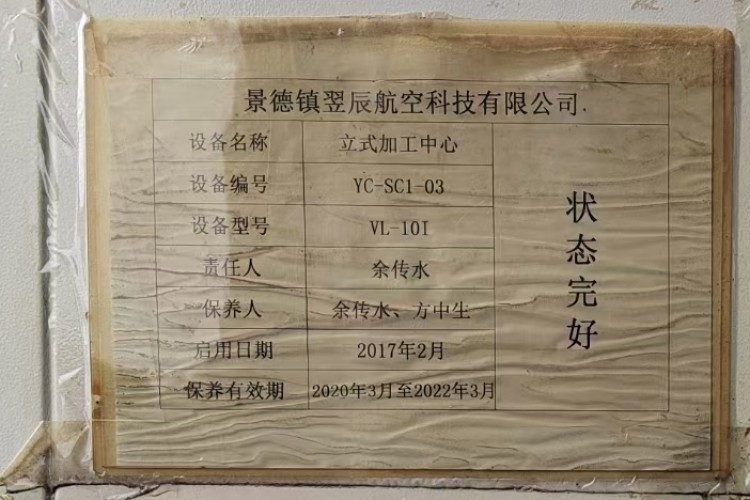 景德镇翌辰航空科技有限公司.
设备名称 立式加工中心
设备编号 YC-SC1-03
设备型号 VL-10I
责任人 余传水
保养人 余传水、方中生
启用日期 2017年2月
保养有效期 2020年3月至2022年3月
状态完好